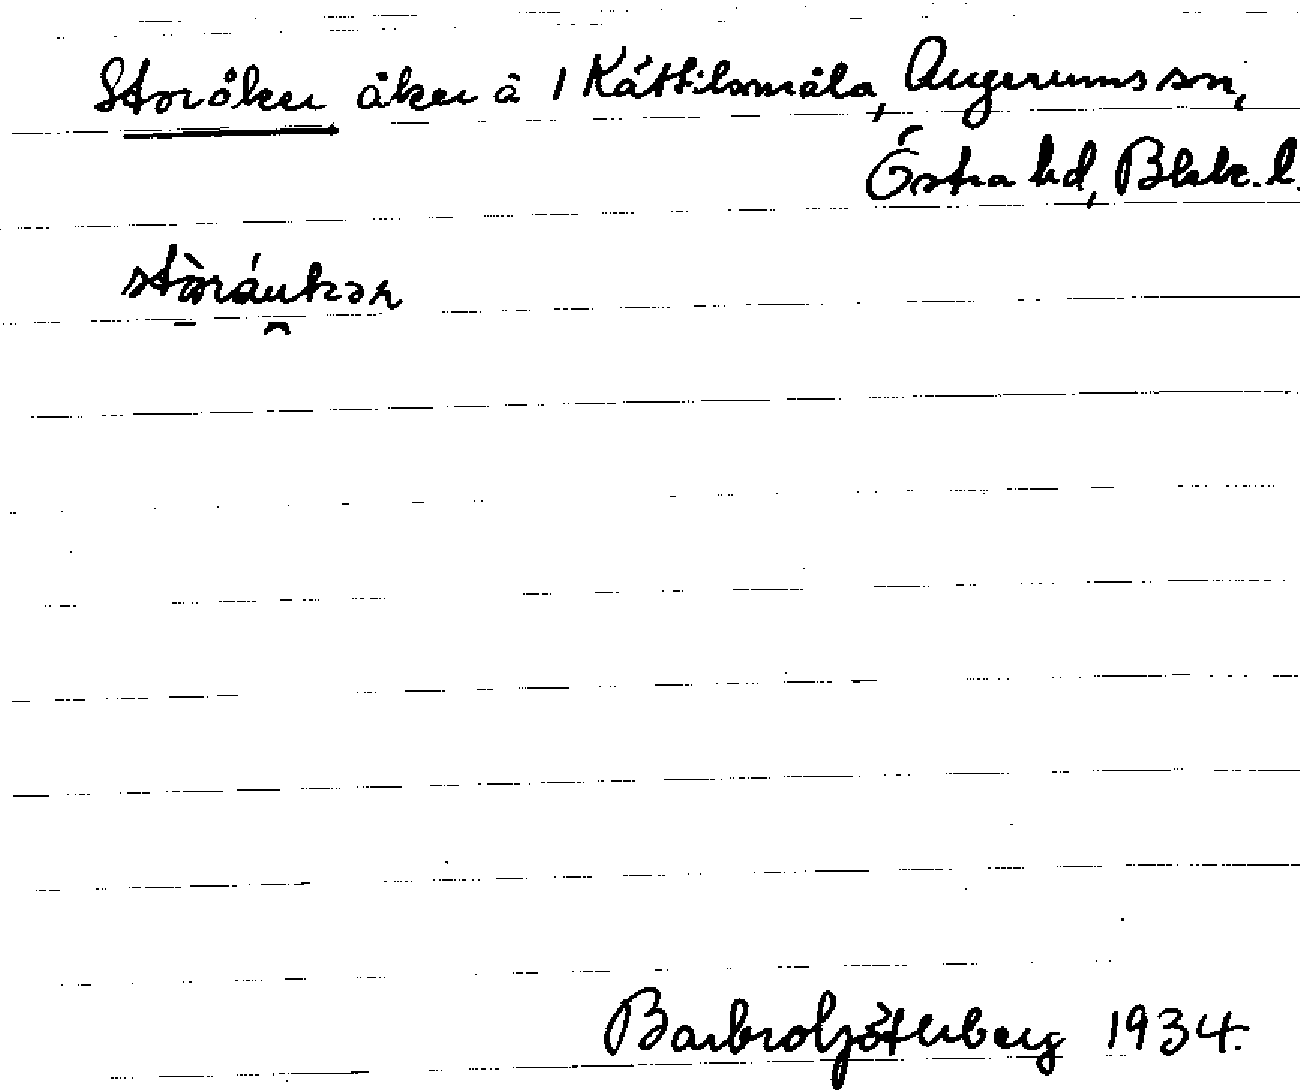 Storåker åker å 1 Kättilsmåla, Augerums sn,
Östra hd, Blek. l.
stòráukər
Barbro Götherberg 1934.